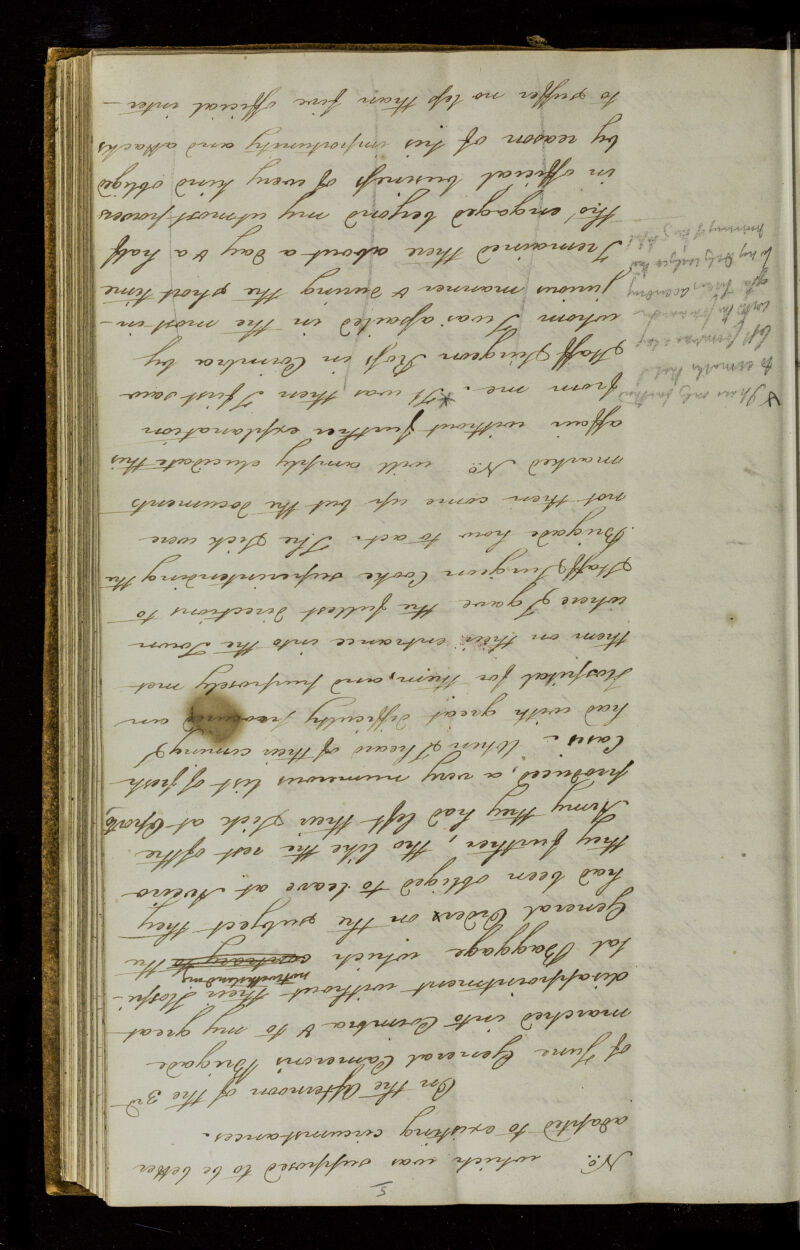 5
No. which was supposed to be better
adapted to existing circumstances.
On the Afternoon of the 3rd
of June General Camerons Brigade
marched into Coimbra & to my great
disappointment without their Hospi-
notwithstanding
tal Baggage which contrary to the
General Orders on the subject they
had been obliged to leave at Aveiro
they further, tho like the rest of the
Army they had left their Sick at Oporto,
produced, a very numerous list of fresh
Cases. When I heard of their coming I
had with great difficulty procured an
Hospital for them, and purposely met
them on their entrance into the Town
where I gave the fullest directions to
Staff Surgeon Cooke superintending the
Brigade how to act. The Sick were
not then come up but the documents
marked No. will amply elucidate this
affair without further explanation
from me. * It was then I first saw
Staff Surgeon Rofs in Coimbra by
whom I was afsailed in the most in-
jurious manner & during the short time
I remained there about a day & a half
tho' engaged beyond my utmost powers
in official businefs of every kind obliged
by reason of his importunity and attacks
to suffer no lefs than five official inter-
* I have only further
to remark that I
left Coimbra a day
according
to my